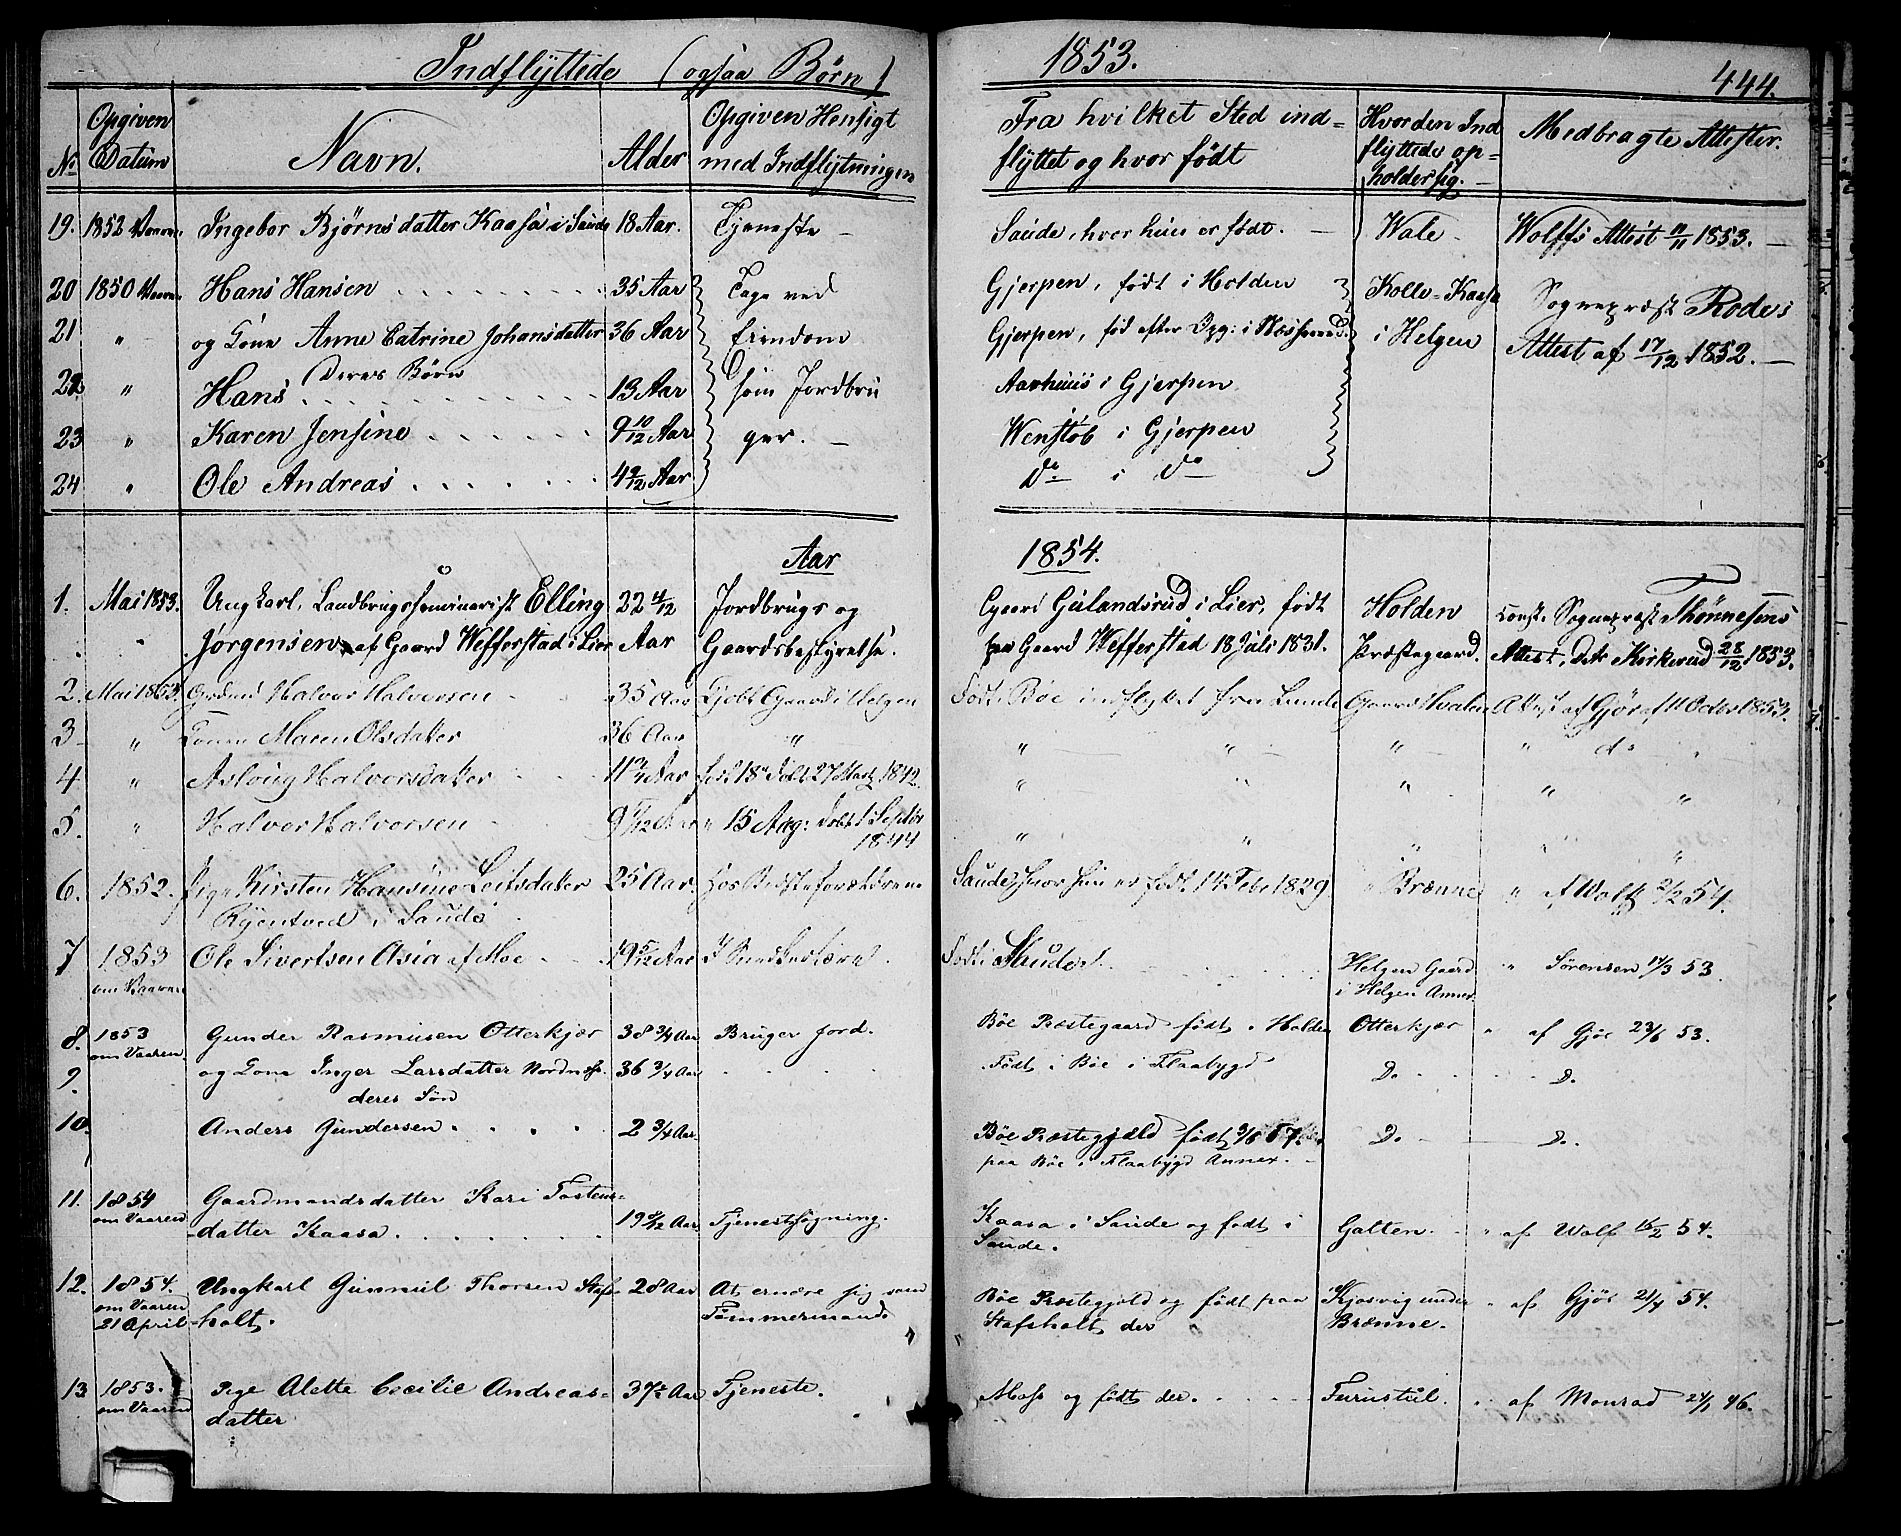 Indflyttede (ogsaa Børn) 1853.
444.
No
Opgiven Datum
Navn.
Alder
Opgiven Hensigt med Indflytningen
Fra hvilket Sted indflyttet og hvor født
Hvor den Indflyttede opholder sig.
Medbragte Attester.
19. 1852 Vaaren Ingebor Bjørnsdatter Kaasa i Saude 18 Aar. Tjeneste Saude, hvor hun er født. Wale Wolffs Attest 11/11 1853.
20 1850 Vaaren Hans Hansen 35 Aar Tage ved Gjerpen, født i Holden Kolle-Kaasa Sognepræst Rodes
21 " og Kone Anne Catrine Johansdatter 36 Aar Eiendom Gjerpen, fød efter Opg: i i Helgen Attest af 17/12 1852.
Deres Børn
22 " Hans 13 Aar som Jordbru Aarhuus i Gjerpen
23 " Karen Jensine 9 10/12 Aar ger. Wenstøb i Gjerpen
24 " Ole Andreas 4 9/12 Aar Do i Do
Aar 1854.
1. Mai 1853. Ungkarl, Landbrugsseminarist Elling 22 4/12 Jordbrugs og Gaard Gulandsrud i Lier, født Holden const. Sognepræst Thønnesens
" Jørgensen af Gaard Wefferstad i Lier Aar Gaardsbestyrelse. paa Gaard Wefferstad 18 Juli 1831. Præstegaard. Attest, dat. Kirkerud 28/12 1853.
2. Mai 1853. Grdmd Halvor Halvorsen 35 Aar Kjøbt Gaard i Helgen Født i Bøe indflyttet fra Lunde Gaard Hvalen Attest af Gjør af 11 Octbr 1853.
3 " Konen Maren Olsdatter 36 Aar " " " " " do "
4 " Asloug Halvorsdatter 11 Aar født 18 døbt 27 Marts 1842. " " " " "
5. " Halvor Halvorsen 9 Aar " 15 Aug: døbt 1 Septbr 1844 " " " " "
6. 1852. Pige Kirsten Hansine Leifsdatter 25 Aar. Hos Bedsteforældrene Saude, hvor hun er født 14 Febr 1829. " Brænne " af Wolff 2/2 54.
Ryentved i Saude
7 1853 om Vaaren Ole Sivertsen Asia af Moe 19 5/12 Aar I Smedkelære. Født i Skude Helgen Gaard i Helgen Annex " Sørensen 14/3 53.
8. 1853 om Vaaren Gunder Rasmusen Otterkjær 38 3/4 Aar Bruger Jord. Bøe Præstegaard født i Holden Otterkjær " af Gjör 23/6 53.
9. og Kone Inger Larsdatter 36 3/4 Aar Født i Bøe i Flaabygd D. D.
deres Søn
10. Anders Gundersen. 2 3/4 Aar Bøe Præstegjæld født D. D.
paa Bøe i Flaabygd Annex.
11. 1854 om Vaaren Gaardmandsdatter Kari Tostens-
datter Kaasa. 19 Aar Tjenestsøgning. Kaasa i Saude og født i Saude. Gatten. " af Wolf 15/2 54.
12. 1854. om Vaaren 21 April Ungkarl Gunnul Thorsen Stafs- 28 Aar At ernære sig som Bøe Præstegjæld og født paa Kjosvig under " af Gjör 21/4 54.
holt. Tømmermand. Stafsholt der Brænne.
13 1853. om Vaaren Pige Alette Cecilie Andreas- 37 Aar Tjeneste. Moss og født der. Furustul. " af Monrad 24/1 46.
datter